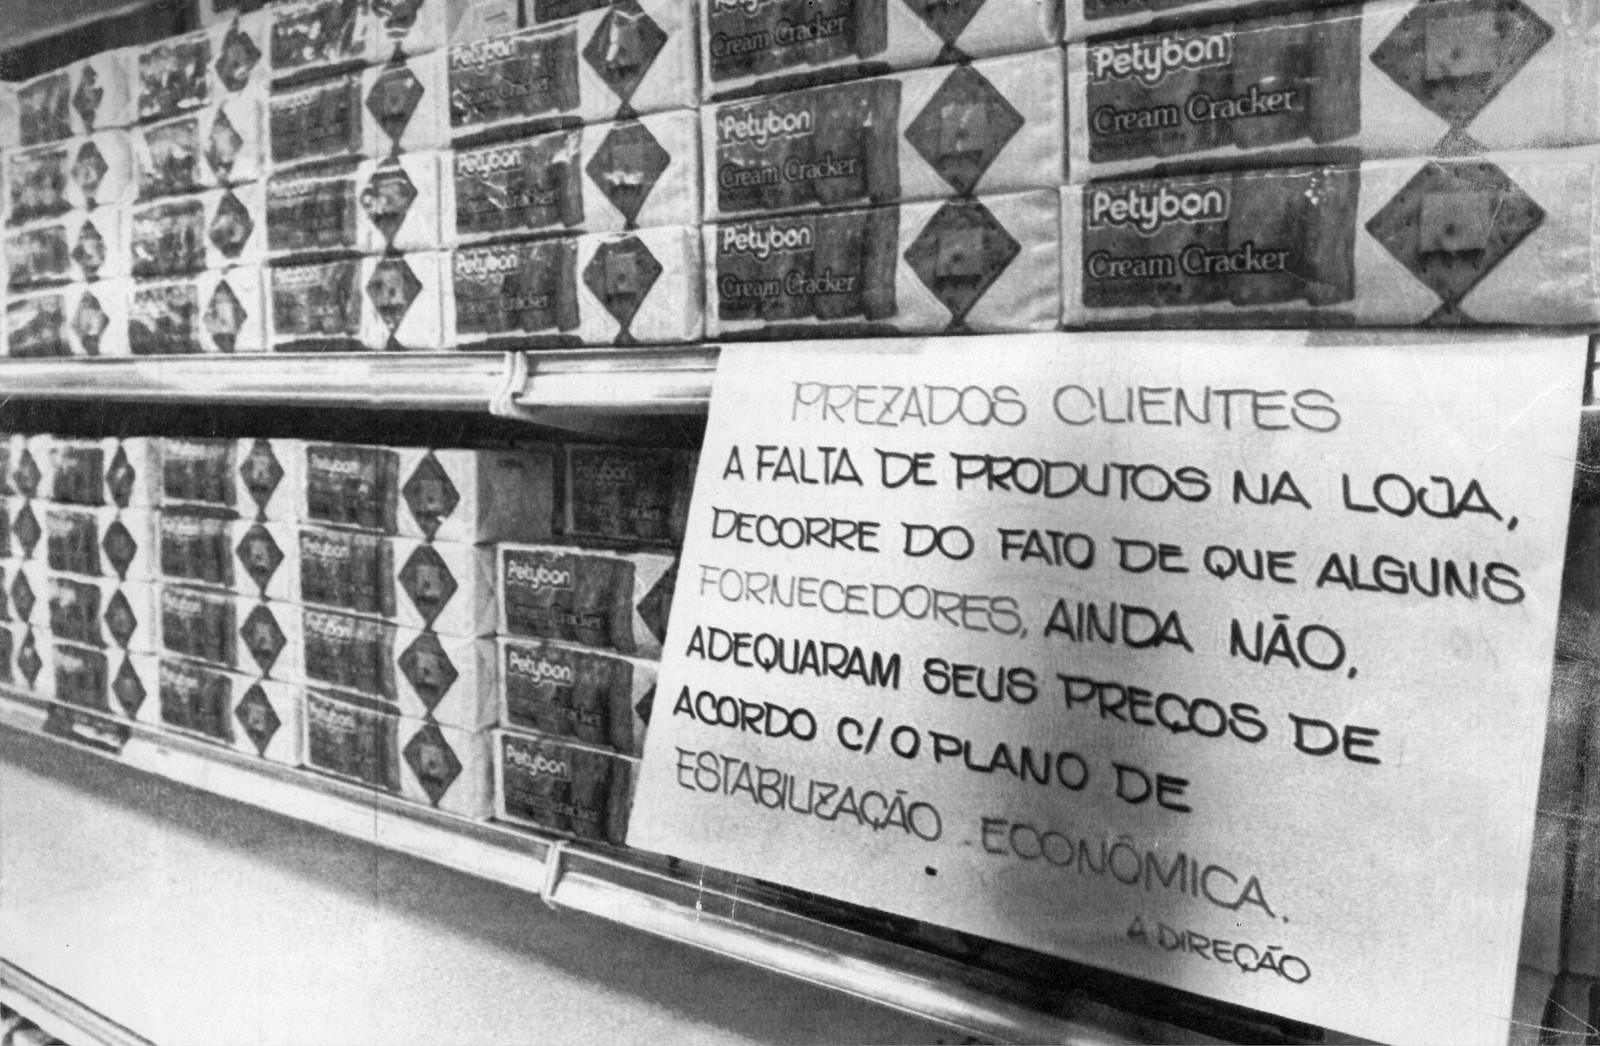 Petybon
Cream Cracker
Petybon
Cream Cracker
Cream Cracker
Petybon
Cream Cracker
Petybon
Cream Cracker
Petybon
Petybon
Petybon
Petybon
Petybon
Petybon
Petybon
Petybon
PREZADOS CLIENTES
A FALTA DE PRODUTOS NA LOJA,
DECORRE DO FATO DE QUE ALGUNS
FORNECEDORES, AINDA NÃO,
ADEQUARAM SEUS PREÇOS DE
ACORDO C/O PLANO DE
ESTABILIZAÇÃO ECONÔMICA.
A DIREÇÃO